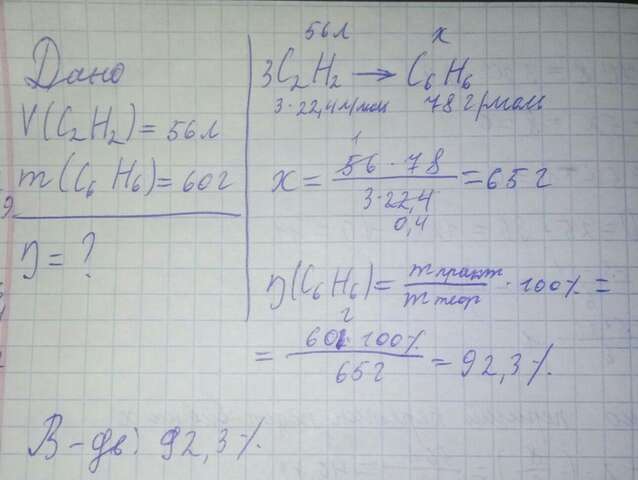 Дано
V(C₂H₂) = 56л
m(C₆H₆) = 60г
η = ?
56л x
3C₂H₂ → C₆H₆
3·22,4л/моль 78г/моль
x = 56·78 / 3·22,4 = 65г
1
0,4
η(C₆H₆) = m практ / m теор · 100% =
= 60г·100% / 65г = 92,3%
В-дь: 92,3%